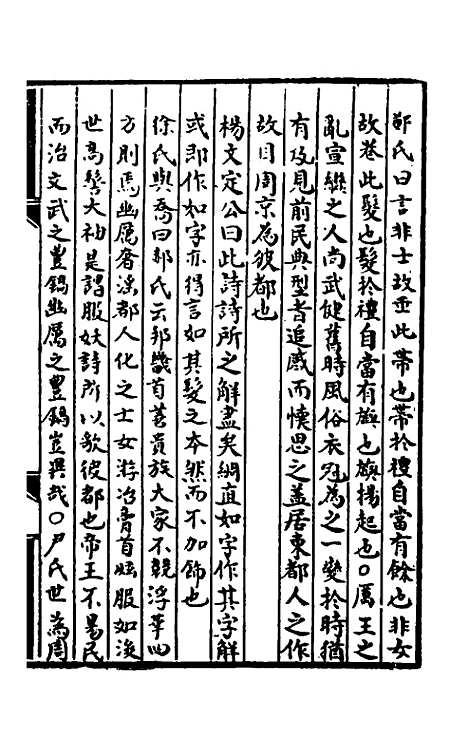 鄭氏曰言非士故垂此帶也帶於禮自當有餘也非女
故卷此髮也髮於禮自當有旟也旟揚起也○厲王之
亂宣繼之人尚武健舊時風俗衣冠為之一變於時猶
有及見前民典型者追感而懷思之蓋居東都人之作
故目周京為彼都也
楊文定公曰此詩詩所之解盡矣綢直如字作其字解
或即作如字亦得言如其髮之本然而不加飾也
徐氏與喬曰郝氏云邦畿首善貴族大家不競浮華四
方則焉幽厲奢淫都人化之士女游冶膏首炫服如後
世高髻大袖是謂服妖詩所以歌彼都也帝王不易民
而治文武之豐鎬幽厲之豐鎬豈異哉○尹氏世為周